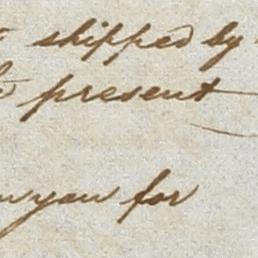 shipped by
present
you for